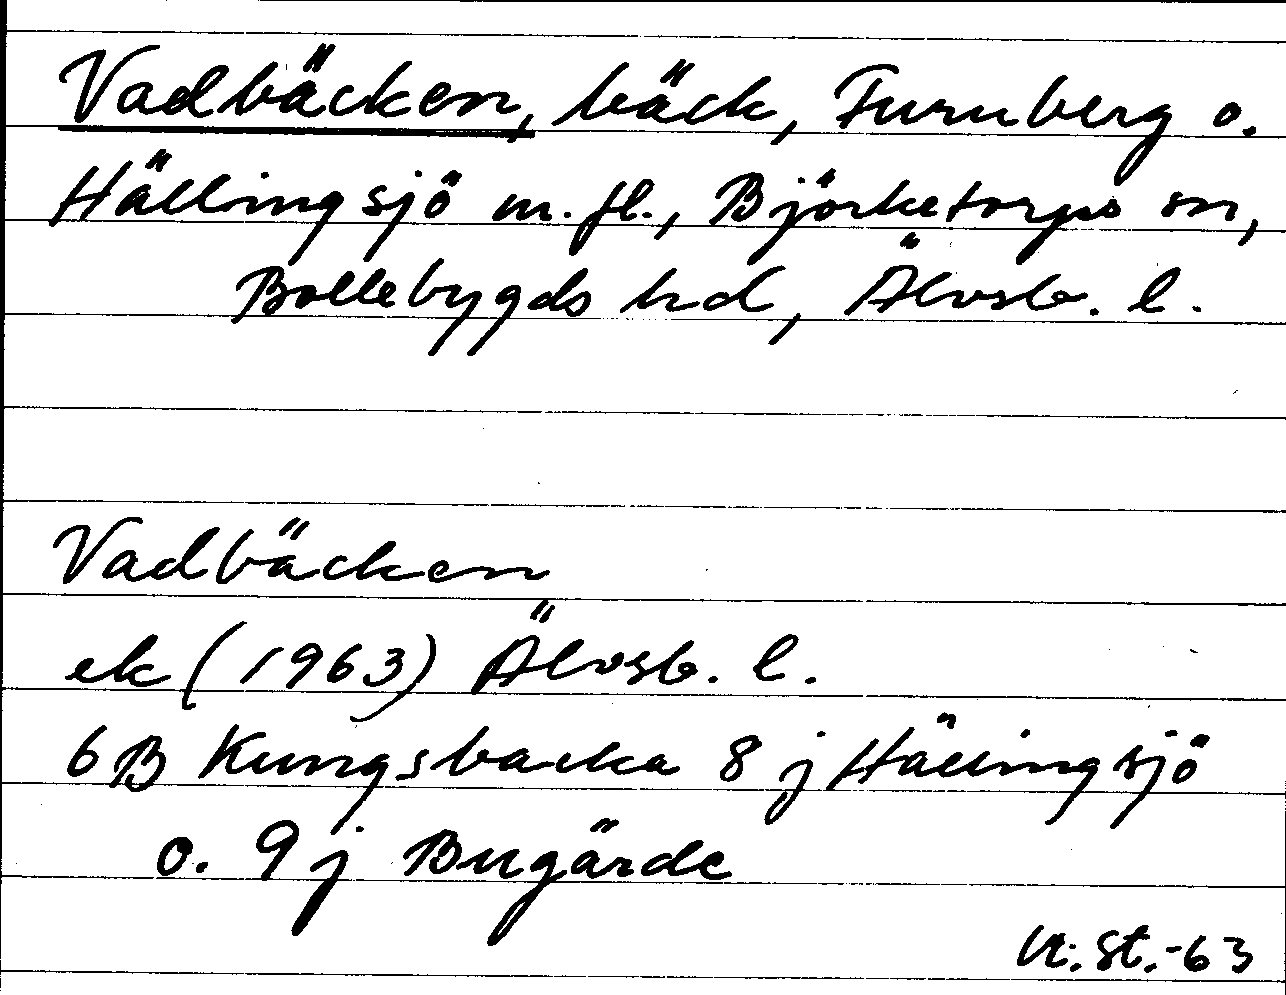 Vadbäcken, bäck, Furuberg o.
Hällingsjö m.fl., Björketorps sn,
Bollebygds hd, Älvsb. l.
Vadbäcken
ek (1963) Älvsb. l.
6B Kungsbacka 8 j Hällingsjö
o. 9 j Bugärde
st.-63